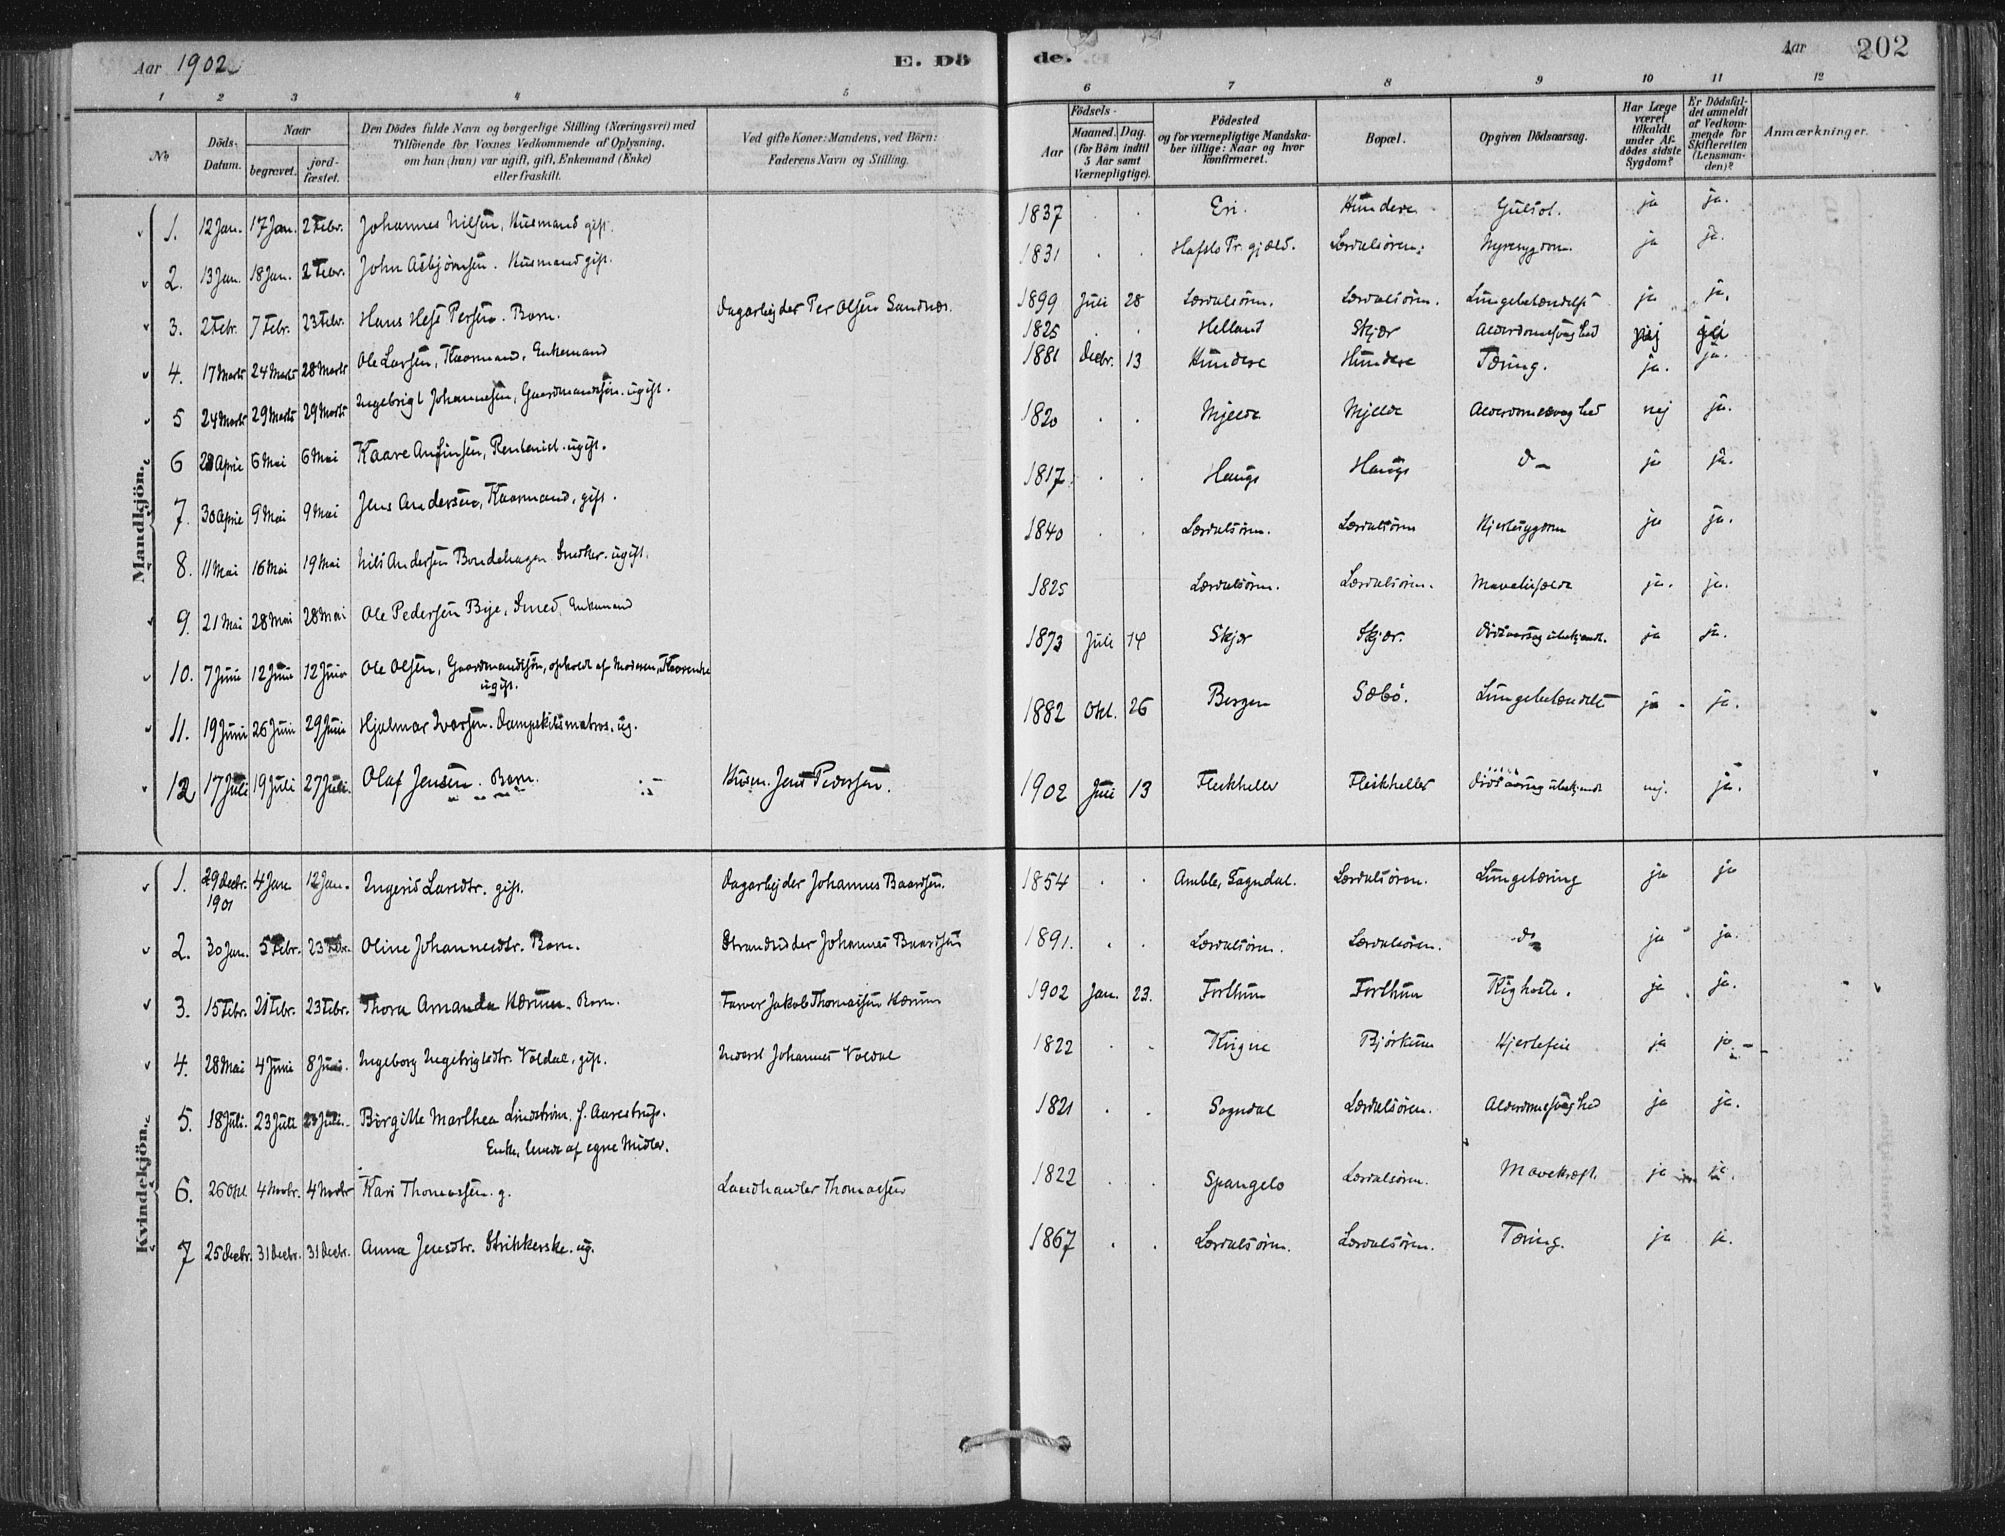 Aar 1902
E. Dö
de.
Aar
202
1 2 3 4 5
6 7 8 9 10 11 12
No
Döds-Datum.
Naar
begravet.
jordfæstet.
Den Dödes fulde Navn og borgerlige Stilling (Næringsvei) med
Tilföiende for Voxnes Vedkommende af Oplysning,
om han (hun) var ugift, gift, Enkemand (Enke)
eller fraskilt.
Ved gifte Koner: Mandens, ved Börn:
Faderens Navn og Stilling.
Födsels-
Aar
Maaned. Dag.
(for Börn indtil
5 Aar samt
Værnepligtige).
Födested
og for værnepligtige Mandska-
ber tillige: Naar og hvor
konfirmeret.
Bopæl.
Opgiven Dödsaarsag.
Har Læge
været
tilkaldt
under Af-
dödes sidste
Sygdom?
Er Dödsfal-
det anmeldt
af Vedkom-
mende for
Skifteretten
(Lensman-
den)?
Anmærkninger.
Mandkjön.
1. 12 Jan. 17 Jan. 2 Febr. Johannes Nilsen, Husmand gift. 1837 . . Eri. Hundere Gulsot. ja ja.
2. 13 Jan. 18 Jan. 2 Febr. John Asbjörnsen. Husmand gift. 1831 . . Hafslo Pr.gjæld. Lærdalsören. Nyresygdom. ja ja.
3. 2 Febr. 7 Febr. 23 Febr. Hans Persen. Barn. Dagarbejder Per Olsen Sandnes. 1899 Juli 28 Lærdalsören. Lærdalsören. Lungebetændelse ja ja.
4. 17 Marts 24 Marts 28 Marts Ole Larsen, Kaarmand, Enkemand 1825 . . Helland Skjær Alderdomssvaghed nej ja
5 24 Marts 29 Marts 29 Marts Ingebrigt Johannesen, Gaardmandssön. ugift. 1881 Decbr. 13 Hundere Hundere Tæring. ja. ja.
6 28 April 6 Mai 6 Mai Kaare Anfinsen, Rentenist. ugift. 1820 . . Mjelde Mjelde Alderdomssvaghed nej ja.
7. 30 April 9 Mai 9 Mai Jens Andersen, Kaarmand, gift. 1817 . . Haugs Haugs do ja ja.
8. 11 Mai 16 Mai 19 Mai Nils Andersen Bondehagen Snedker. ugift. 1840 . . Lærdalsören. Lærdalsören Hjertesygdom ja ja.
9. 21 Mai 28 Mai 28 Mai Ole Pedersen Bye, Smed, Enkemand 1825 Lærdalsören. Lærdalsören. ja. ja.
10. 7 Juni 12 Juni 12 Juni Ole Olsen, Gaardmandssön, opholdt af Moderen, Kaarenke
ugift. 1873 Juli 14 Skjær Skjær. Dödsaarsag ubekjendt. ja ja.
11. 19 Juni 26 Juni 29 Juni Hjalmar Ivarsen. Dampskibsmatros. ug. 1882 Okt. 26 Bergen Sæbö. Lungebetændelse ja ja.
12 17 Juli 19 Juli 27 Juli. Olaf Jensen. Barn. Husm. Jens Pedersen. 1902 Juli 13 Fleskheller Fleskheller Dödsaarsag ubekjendt nej. ja.
Kvindekjön.
1. 29 Decbr. 1901 4 Jan 12 Jan. Ingerid Larsdtr. gift. Dagarbejder Johannes Baardsen. 1854 . . Amble, Sogndal. Lærdalsören. Lungetæring ja ja
2. 30 Jan. 5 Febr. 23 Febr. Oline Johannesdtr. Barn. Strandsidder Johannes Baardsen 1891. . . Lærdalsören. Lærdalsören. do ja ja.
3. 15 Febr. 21 Febr. 23 Febr. Thora Amanda Hærum. Barn. Farver Jakob Thomassen Hærum 1902 Jan. 23. Forthun Forthun Kighoste. ja ja.
4. 28 Mai 4 Juni 8 Juni. Ingeborg Ingebrigtsdtr. Voldal, gift. Inderst Johannes Voldal 1822 . . Krigne Björkum Hjertefeil ja ja.
5. 18 Juli. 23 Juli 23 Juli. Birgitte Marthea Lindström f. Aarestrup.
Enke, levede af egne Midler. 1821 . . Sogndal Lærdalsören. Alderdomssvaghed ja ja.
6. 26 Okt. 4 Novbr. 4 Novbr Kari Thomassen. g. Landhandler Thomassen 1822 . . Spangelo Lærdalsören. Mavekræft. ja ja.
7 25 Decbr. 31 Decbr. 31 Decbr. Anna Jensdtr. Strikkerske. ug. 1867 . . Lærdalsören. Lærdalsören. Tæring. ja ja.